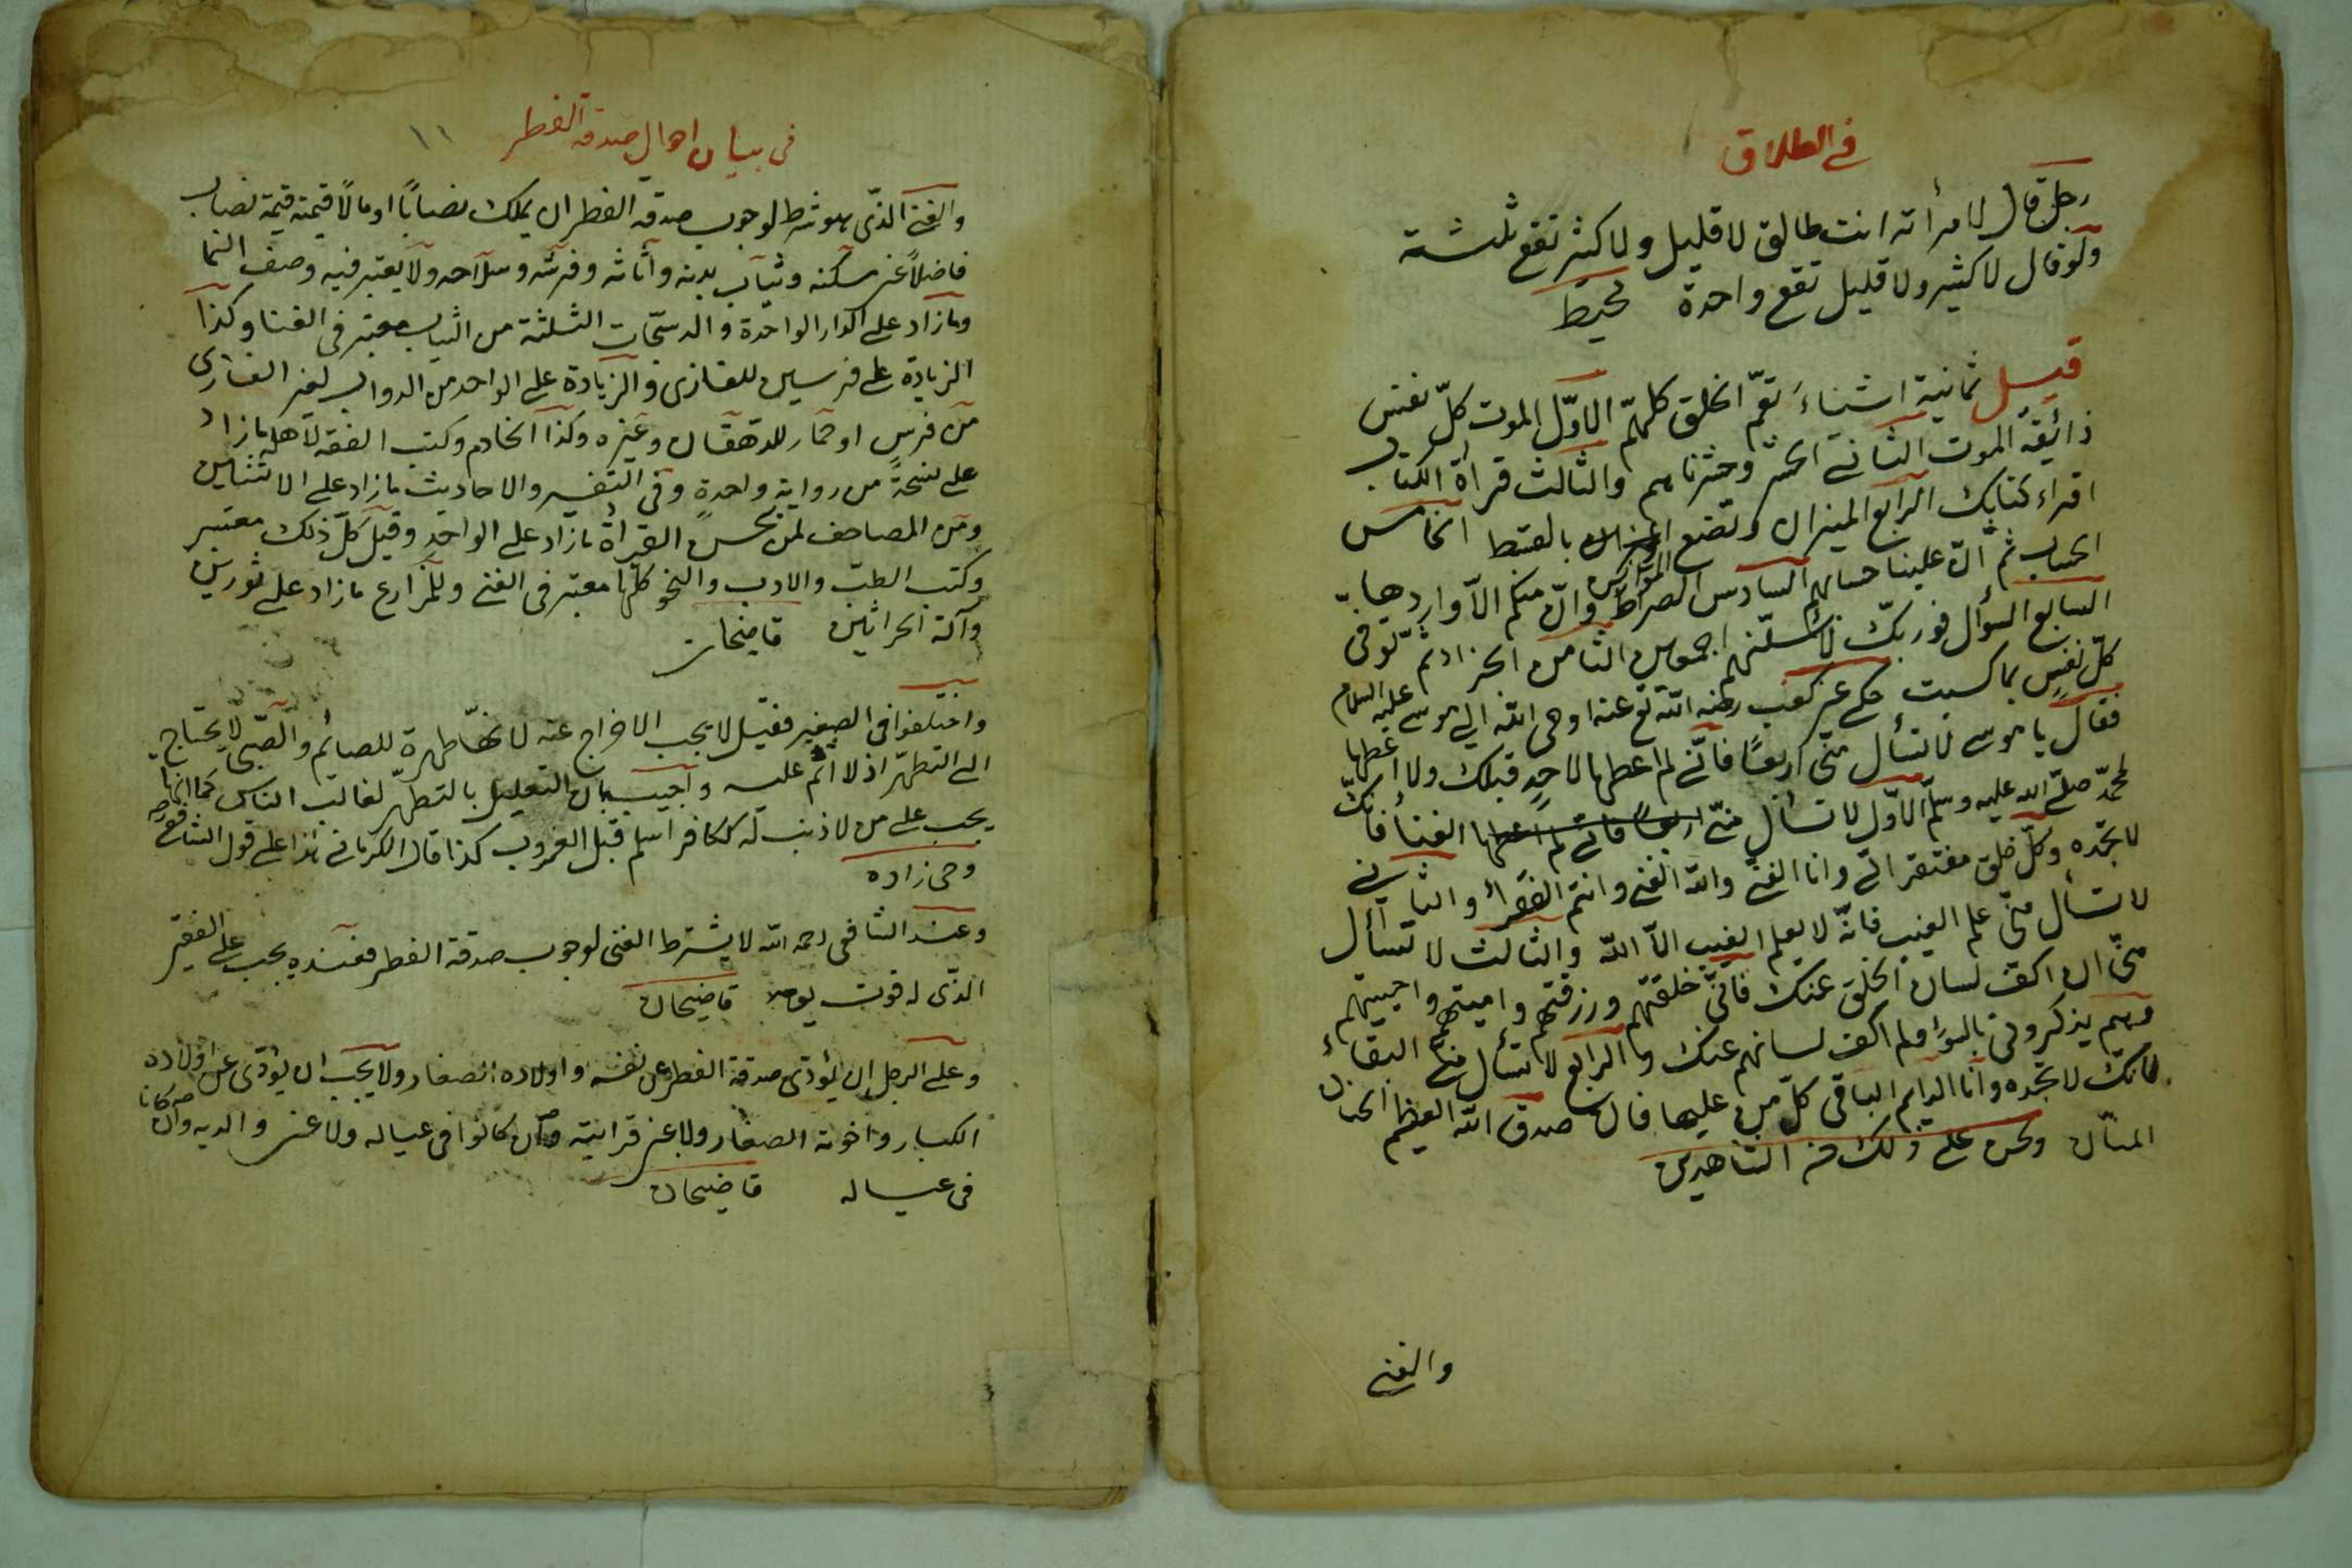 في الطلاق
رجل قال لامرأته انت طالق لا قليل ولا كثير تقع ثلثة
ولو قال لا كثير ولا قليل تقع واحدة محيط
قيل ثمانية اشياء تعمّ الخلق كلهم الاوّل الموت كلّ نفس
ذائقة الموت الثاني الحشر وحشرناهم والثالث قرأة الكتاب
اقراء كتابك الرابع الميزان ونضع الموازين بالقسط الخامس
الحساب ثم انّ علينا حسابهم السادس الصراط وانّ منكم الاّ واردها
السابع السؤال فوربّك لنسئلنهم اجمعين الثامن الجزاء ثم توفى
كلّ نفس بما كسبت حكى عن كعب رضى الله تع عنه اوحى الله الى موسى عليه السلام
فقال يا موسى لا تسأل منّى اربعًا فانّى لم اعطها لاحد قبلك ولا اعطها
لمحمّد صلّى الله عليه وسلّم الاوّل لا تسأل منّى الغنأ فانّك
لا تجده وكلّ خلق مفتقر الىّ وانا الغنىّ والله الغنى وانتم الفقرأ والثانى
لا تسأل منّى علم الغيب فانّه لا يعلم الغيب الاّ الله والثالث لا تسأل
منّى ان اكفّ لسان الخلق عنك فانّى خلقتهم ورزقتهم واميتهم واحييتهم
وهم يذكروننى بالسوء ولم اكفّ لسانهم عنك والرابع لا تسأل منّى البقاء
فانّك لا تجده وانا الدايم الباقى كلّ من عليها فان صدق الله العظيم الحنان
المنّان ونحن على ذلك من الشاهدين
والغنى
في بيان احوال صدقة الفطر ١١
والغنى الذّى هو شرط لوجوب صدقة الفطر ان يملك نصابًا او مالاً قيمته قيمة نصاب
فاضلاً عن مسكنه وثياب بدنه وأثاثه وفرسه وسلاحه ولا يعتبر فيه وصف النما
وما زاد على الدار الواحدة والدستجات الثلثة من الثياب معتبر فى الغنا وكذا
الزيادة على فرسين للغازى والزيادة على الواحد من الدواب لغير الغازى
من فرس او حمار للدهقان وغيره وكذا الخادم وكتب الفقه لاهله ما زاد
على نسخة من رواية واحدة وفى التفسير والاحاديث ما زاد على الاثنين
ومن المصاحف لمن يحسن القرأة ما زاد على الواحد وقيل كلّ ذلك معتبر
وكتب الطبّ والادب والنحو كلّها معتبر فى الغنى وللمزارع ما زاد على ثورين
وآلة الحراثين قاضيخان
واختلفوا فى الصغير فقيل لا يجب الاخراج عنه لانّها طهرة للصائم والصّبى لا يحتاج
الى التطهّر اذ لا اثم عليه واجيب بان التعليل بالتطهّر لغالب الناس كما انّها
يجب على من لا ذنب له ككافر اسلم قبل الغروب كذا قال الكرمانى هذا على قول الشافعى
وحى زاده
وعند الشافعى رحمه الله لا يشترط الغنى لوجوب صدقة الفطر فعنده يجب على الفقير
الذّى له قوت يومه قاضيخان
وعلى الرجل ان يؤدّى صدقة الفطر عن نفسه واولاده الصغار ولا يجب ان يؤدّى عن اولاده
الكبار واخوته الصغار ولا عن قرابته وان كانوا فى عياله ولا عن والديه وان كانا
فى عياله قاضيخان